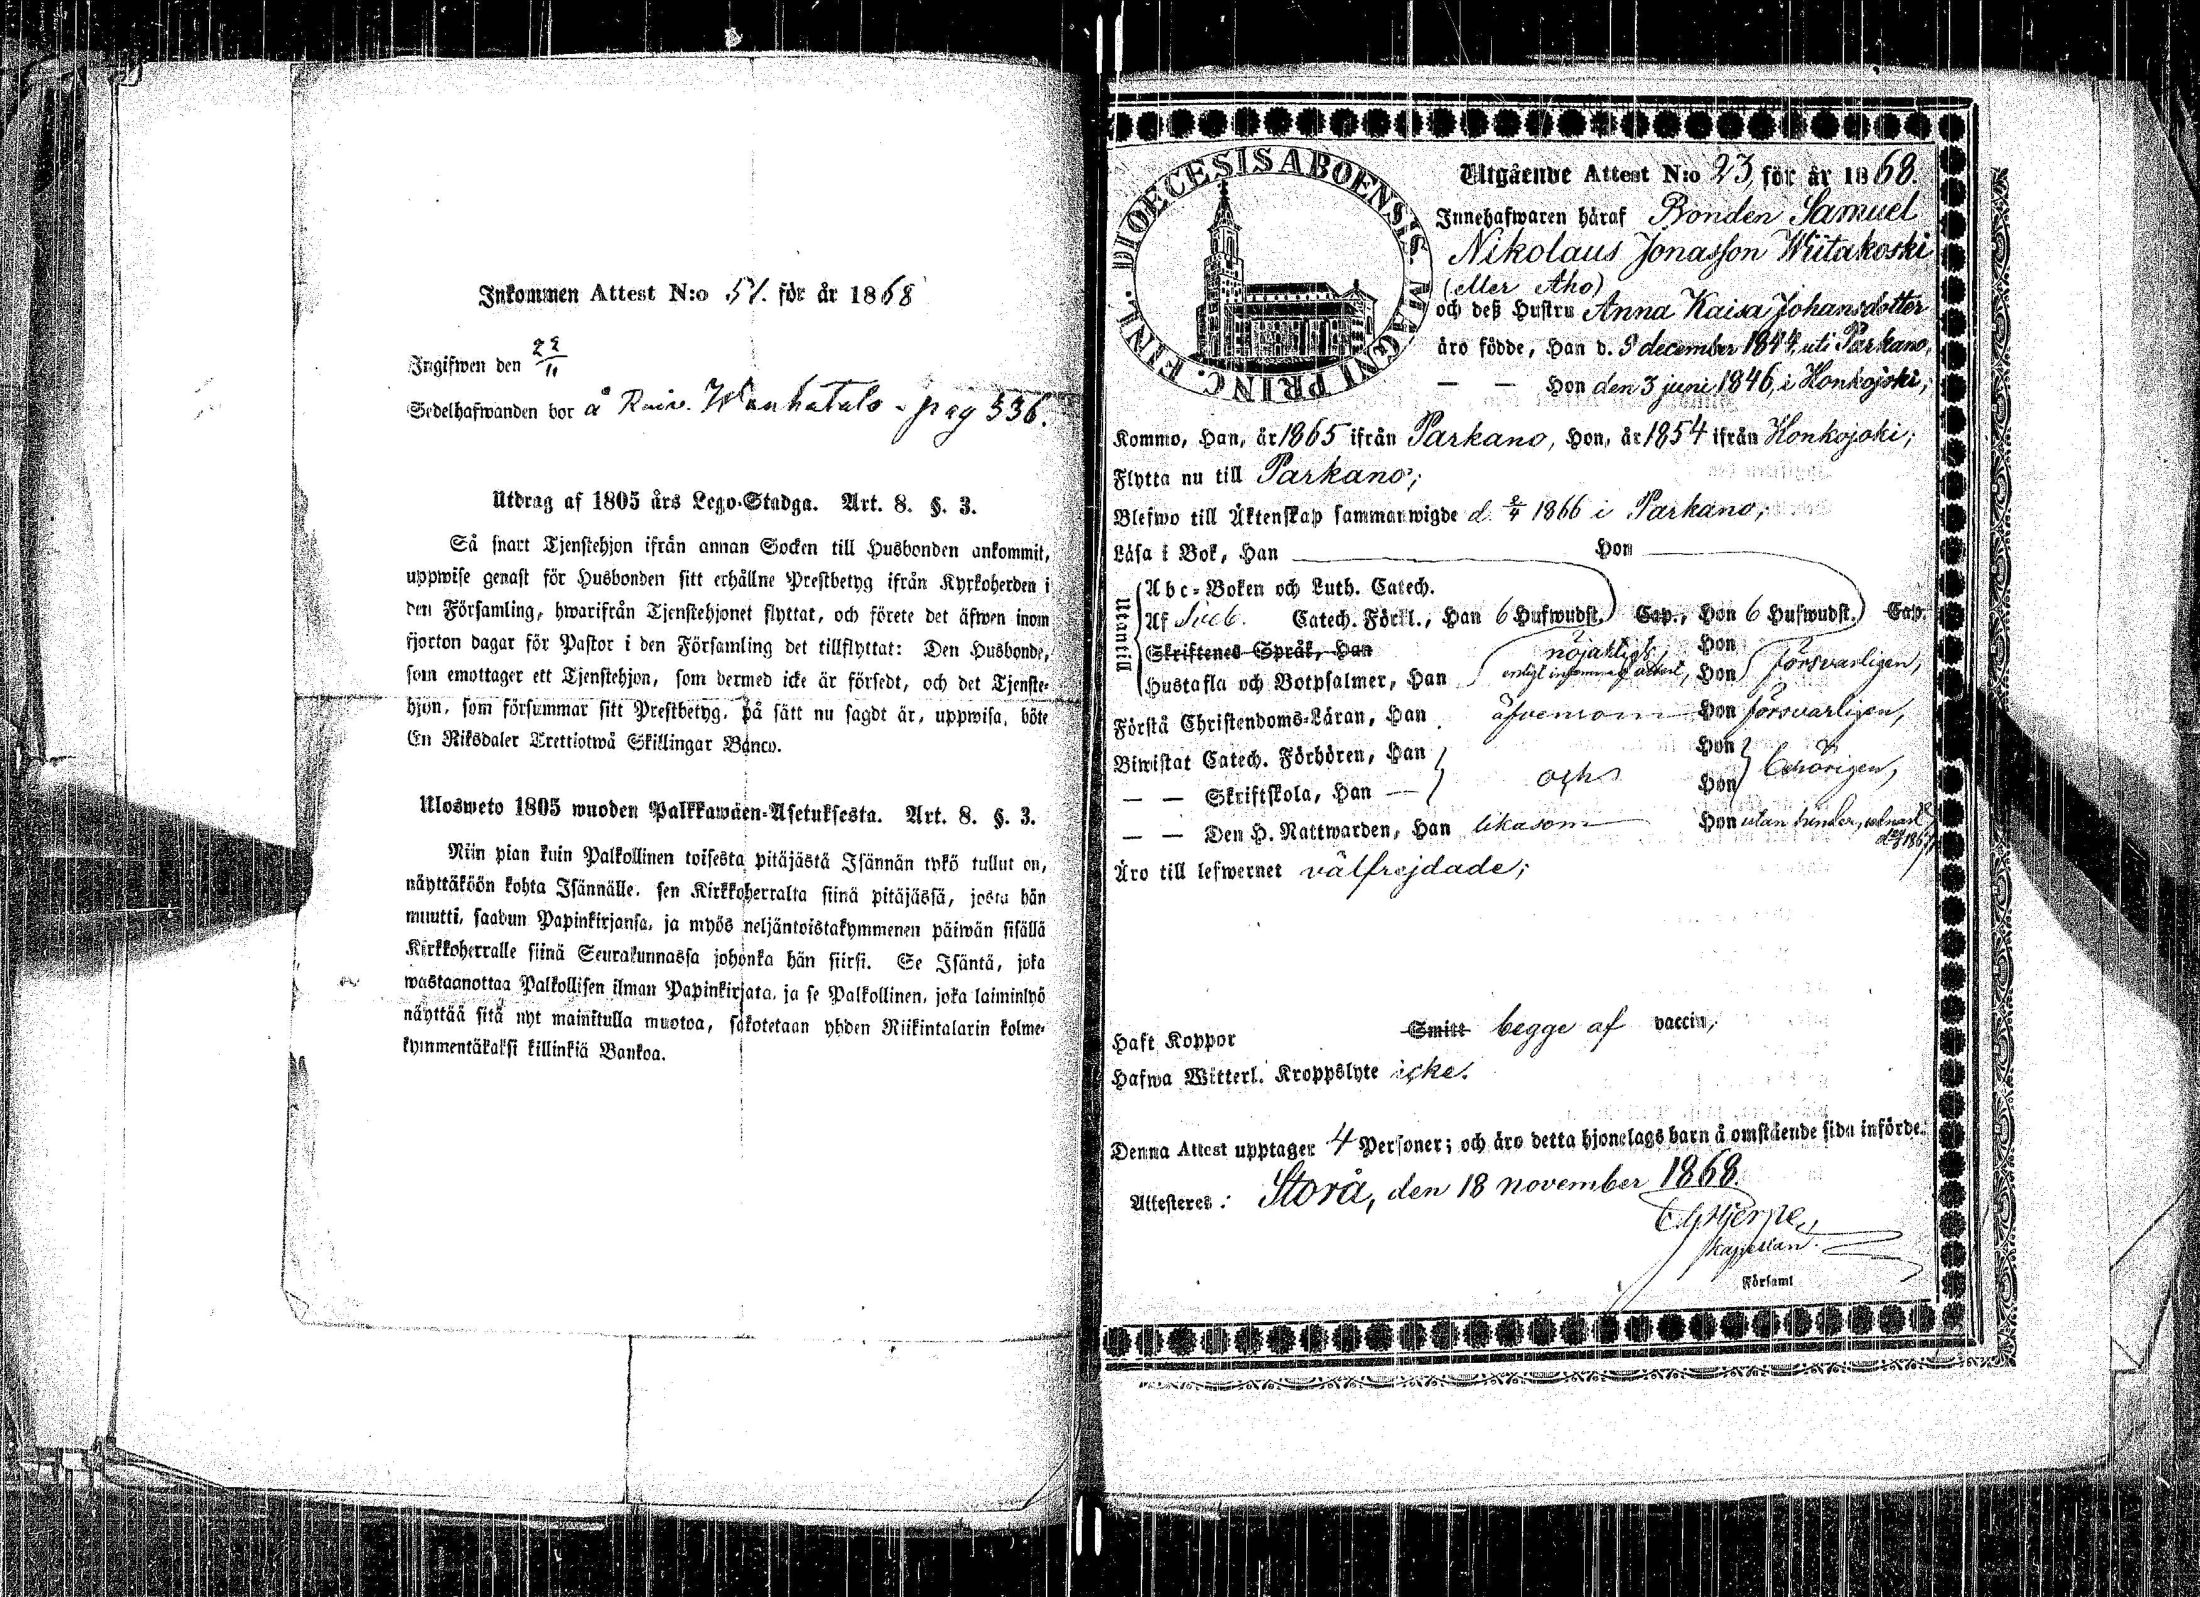 Inkommen Attest N:o 51. för år 1868
Ingifwen den 22/11
Sedelhafwanden bor å Raiv. Wanhatalo - pag 336.
Utdrag af 1805 års Lego-Stadga. Art. 8. §. 3.
Så snart Tjenstehjon ifrån annan Socken till Husbonden ankommit,
uppwise genast för Husbonden sitt erhållne Prestbetyg ifrån Kyrkoherden i
den Församling, hwarifrån Tjenstehjonet flyttat, och förete det äfwen inom
fjorton dagar för Pastor i den Församling det tillflyttat: Den Husbonde,
som emottager ett Tjenstehjon, som dermed icke är försedt, och det Tjenste-
hjon, som försummar sitt Prestbetyg, på sätt nu sagdt är, uppwisa, böte
En Riksdaler Trettiotwå Skillingar Banco.
Ulosweto 1805 wuoden Palkkawäen-Asetuksesta. Art. 8. §. 3.
Niin pian kuin Palkollinen toisesta pitäjästä Isännän tykö tullut on,
näyttäköön kohta Isännälle, sen Kirkkoherralta siinä pitäjässä, josta hän
muutti, saadun Papinkirjansa, ja myös neljäntoistakymmenen päiwän sisällä
Kirkkoherralle siinä Seurakunnassa johonka hän siirsi. Se Isäntä, joka
wastaanottaa Palkollisen ilman Papinkirjata, ja se Palkollinen, joka laiminlyö
näyttää sitä nyt mainitulla muotoa, sakotetaan yhden Riikintalarin kolme-
kymmentäkaksi killinkiä Bankoa.
DIOECESIS ABOENSIS. MAGNI PRINC. FINL.
Utgående Attest N:o 23, för år 1868.
Innehafwaren häraf Bonden Samuel
Nikolaus Jonasson Wiitakoski
(eller Aho)
och deß Hustru Anna Kaisa Johansdotter
äro födde, Han d. 9 december 1844, uti Parkano,
— — Hon den 3 juni 1846, i Honkojoki,
Kommo, Han, år 1865 ifrån Parkano, Hon, år 1854 ifrån Honkojoki;
Flytta nu till Parkano;
Blefwo till Äktenskap sammanwigde d. 2/4 1866 i Parkano;
Läsa i Bok, Han — Hon —
Utantill
Abc-Boken och Luth. Catech.
Af Sveb. Catech. Förkl., Han 6 Hufwudst. Cap., Hon 6 Hufwudst. Cap.
Skriftenes Språk, Han nöjaktigt, Hon
Hustafla och Botpsalmer, Han enligt inkommen attest, Hon försvarligen,
Förstå Christendoms-Läran, Han äfvensom Hon försvarligen,
Biwistat Catech. Förhören, Han Hon
— — Skriftskola, Han — och Hon behörigen,
— — Den H. Nattwarden, Han likasom Hon utan hinder, senast
Äro till lefwernet välfrejdade;
Haft Koppor Smitt begge af vaccin;
Hafwa Witterl. Kroppslyte icke.
Denna Attest upptager 4 Personer; och äro detta hjonelags barn å omstående sida införde.
Attesteres: Storå, den 18 november 1868.
Hjerpe,
kapellan.
Församl